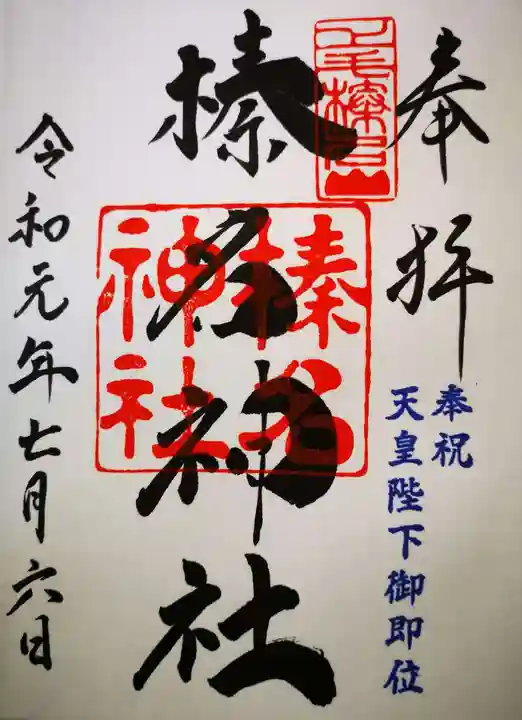 奉拝
奉祝
天皇陛下御即位
上毛榛名山
榛名神社
榛名
神社
令和元年七月六日